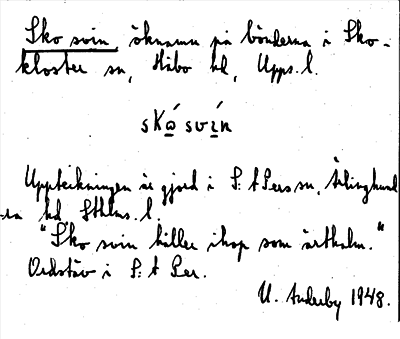 Sko svin öknamn på bönderna i Sko-
kloster sn, Håbo hd, Upps. l.
skǫ́ svín
Uppteckningen är gjord i S:t Pers sn, Ärlinghund
ra hd Sthlms. l.
"Sko svin håller ihop som ärthalm."
Ordstäv i S:t Per.
U. Anderby 1948.